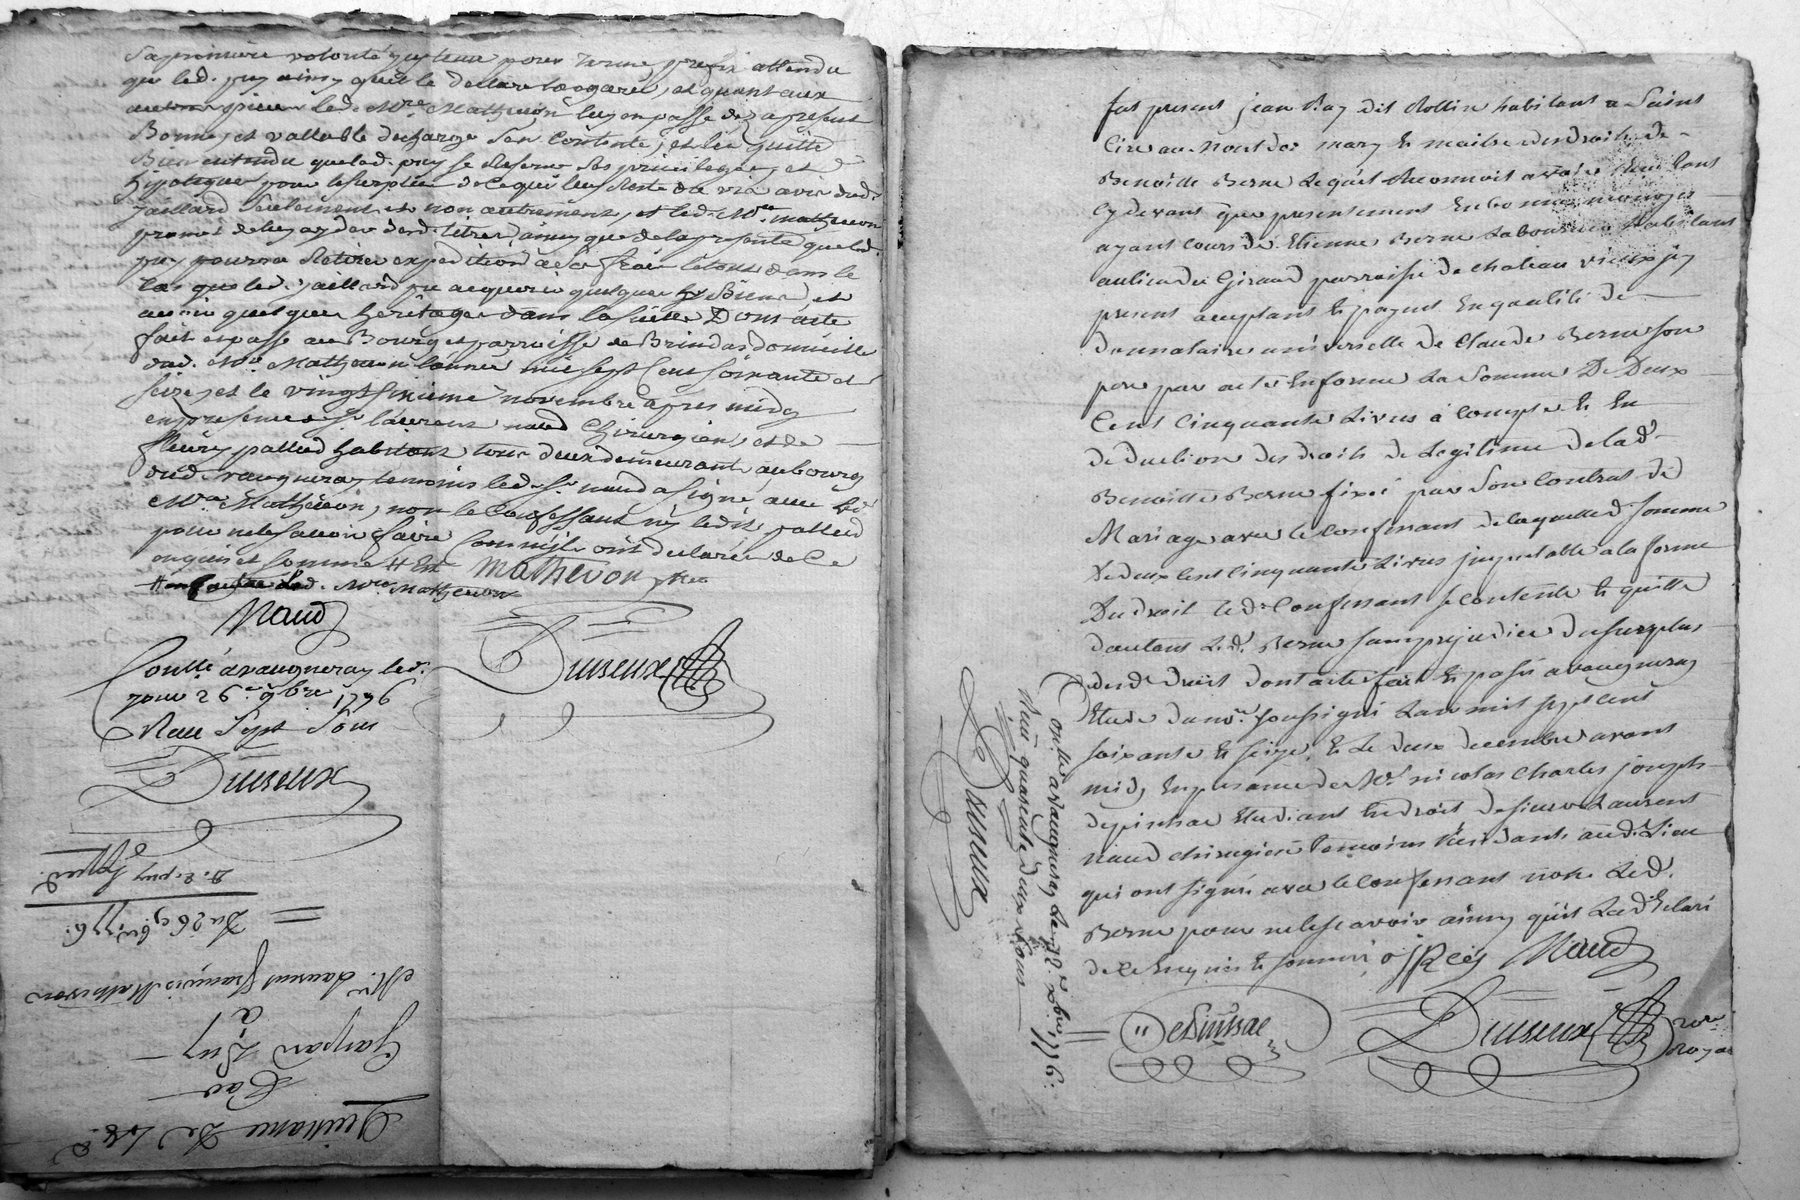 Sa premiere volonté
que led. puy ainsy qu'il le declare
led. Mre Matheuon luy en passe des a present
Bonne, et vallable decharge s'en contente, et l'en quitte
Bien entendu que led. puy se reserve ses privileges, et
hipoteques pour le surplus de ce qui luy reste du
Jaillard Seulement et non autrement, et led. Mre Matheuon
promet de luy ayder desd. titres, ainsy que de la presente que led.
puy pourra retirer expedition a ses frais le tout dans le
Cas que led. jaillard aequerir quelques Biens et
quelques heritages dans la suitte Dont acte
fait et passé au Bourg et parroisse de Brindas domicille
dud. Mre Matheuon l'année mil sept Cent soixante et
seize, et le vingt sixieme novembre apres midy
en presence de Sr. laurent naud Chirurgien, et de
fleury pallud habitans tous deux demeurants au bourg
dud. vaugneray temoins led. Sr. naud a signé avec led.
Mre Matheuon, non le Confessant ny ledit pallud
pour ne le sauoir faire Comm'ils ont declaré de Ce
enquis et sommé
led. Mre Matheuon
Mathevon ptre
Naud
Duiseux
Contlé a vaugneray led.
jour 26e. 9bre 1776
Reçu Sept Sous
Duiseux
Quittance De
Par
Gaspard Puy
à
Mre. Laurent François Mathevon
Du 26 9bre 1776.
fut present jean Ray dit Rollin habitant a Saint
Cire au Mont d'or mary et maitre des droits de
Benoitte Berne Lequel Reconnoit avoir Reçu tant
Cy devant que presentement En bonnes monoyes
ayant cours de Etienne Berne Laboureur habitant
au lieu du Giraud parroisse de chateau vieux jcy
present acceptant et payant En qualité de
donnataire universelle de Claude Berne son
pere par acte En forme La Somme De Deux
Cent Cinquante Livres à Compte et En
deduction des droits de Legitime de lad.
Benoitte Berne fixés par Son Contrat de
Mariage avec le Confessant de laquelle d. somme
De deux Cent Cinquante Livres jmputable a la forme
Du droit Led. Confessant se contente et quitte
d'autant Led. Berne sans prejudice du surplus
desd. droits Dont acte fait et passé a vaugneray
Etude du nore. soussigné L'an mil sept cent
soixante et seize, et Le deux decembre avant
midy En presence de Mr. nicolas charles joseph
depinsac Etudiant En droit de sieur Laurent
Naud chirurgien temoins Residants aud. Lieu
qui ont signé avec le Confessant non Led.
Berne pour ne le scavoir ainsy qu'il La declaré
de ce Enquis et sommé
J R Naud
Depinsac
Duiseux nore
royal
Contlé a vaugneray Le 12e. xbre 1776.
Reçu quarente deux Sous
Duiseux